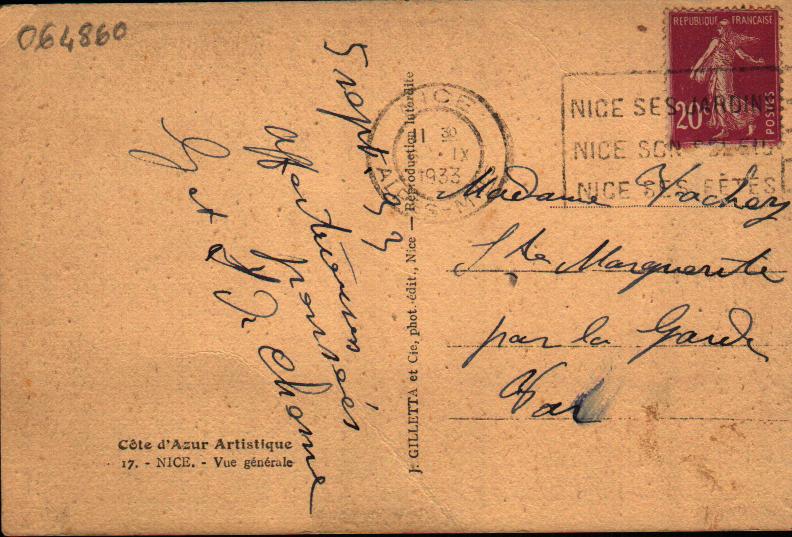 064860
5 sept. 33
affectueuses
pensées
G et
Côte d'Azur Artistique
17. - NICE. - Vue générale
J. GILLETTA et Cie, phot. édit., Nice — Reproduction interdite
NICE
11 30
IX
1933
NICE SES JARDINS
NICE SON SOLEIL
NICE SES FÊTES
REPUBLIQUE FRANÇAISE
20c
POSTES
Madame Vachey
Ste Marguerite
par la Garde
Var